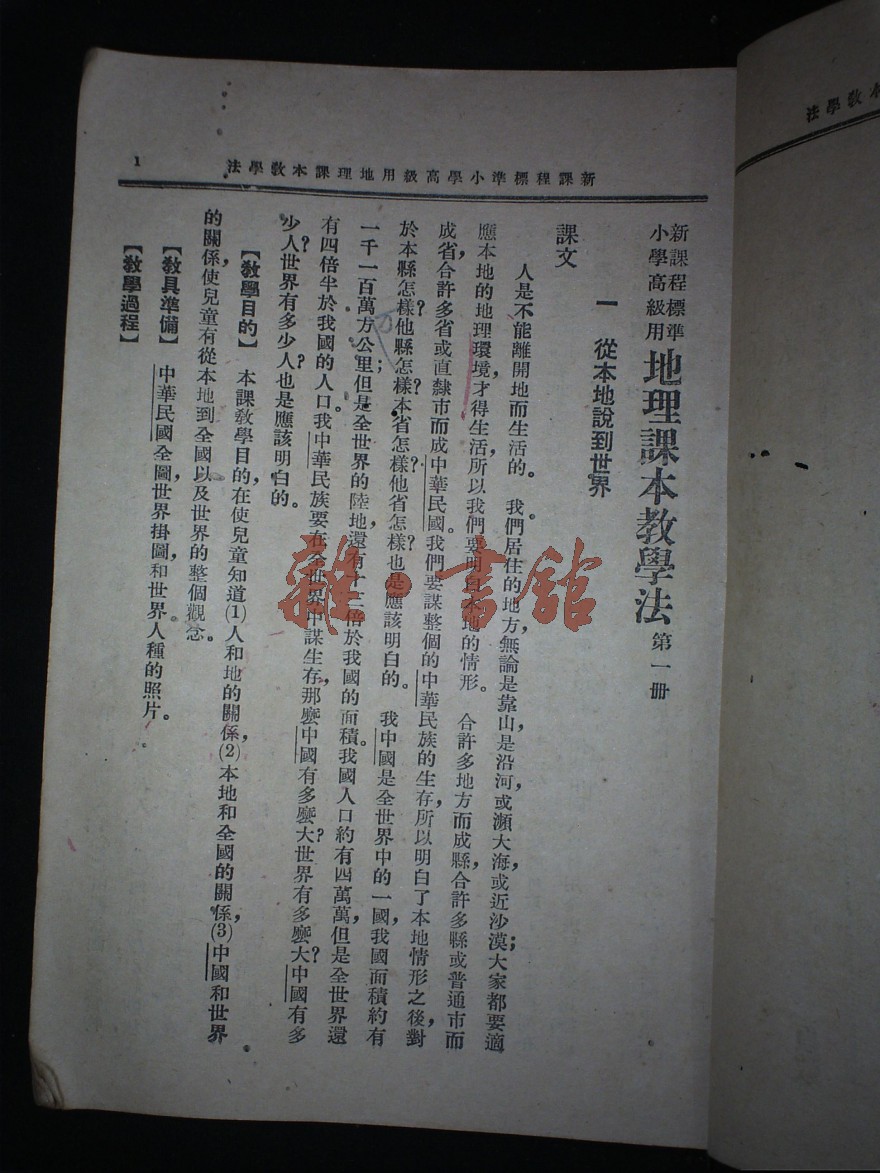 新課程標準小學高級用地理課本教學法
1
新課程標準
小學高級用
地理課本教學法 第一冊
一 從本地說到世界
課文
人是不能離開地而生活的。我們居住的地方,無論是靠山,是沿河,或瀕大海,或近沙漠;大家都要適
應本地的地理環境,才得生活。所以我們要明白本地的情形。合許多地方而成縣,合許多縣或普通市而
成省,合許多省或直隸市而成中華民國。我們要謀整個的中華民族的生存,所以明白了本地情形之後,對
於本縣怎樣?他縣怎樣?本省怎樣?他省怎樣?也是應該明白的。我中國是全世界中的一國,我國面積約有
一千一百萬方公里;但是全世界的陸地,還有十二倍於我國的面積。我國人口約有四萬萬,但是全世界還
有四倍半於我國的人口。我中華民族要在全世界中謀生存,那麼中國有多麼大?世界有多麼大?中國有多
少人?世界有多少人?也是應該明白的。
【教學目的】 本課教學目的在使兒童知道(1)人和地的關係,(2)本地和全國的關係,(3)中國和世界
的關係,使兒童有從本地到全國以及世界的整個觀念。
【教具準備】 中華民國全圖,世界掛圖,和世界人種的照片。
【教學過程】
雜·書館
本教學法